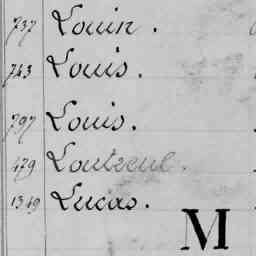 737 Louin.
743 Louis.
797 Louis.
479
1349 Lucas.
M